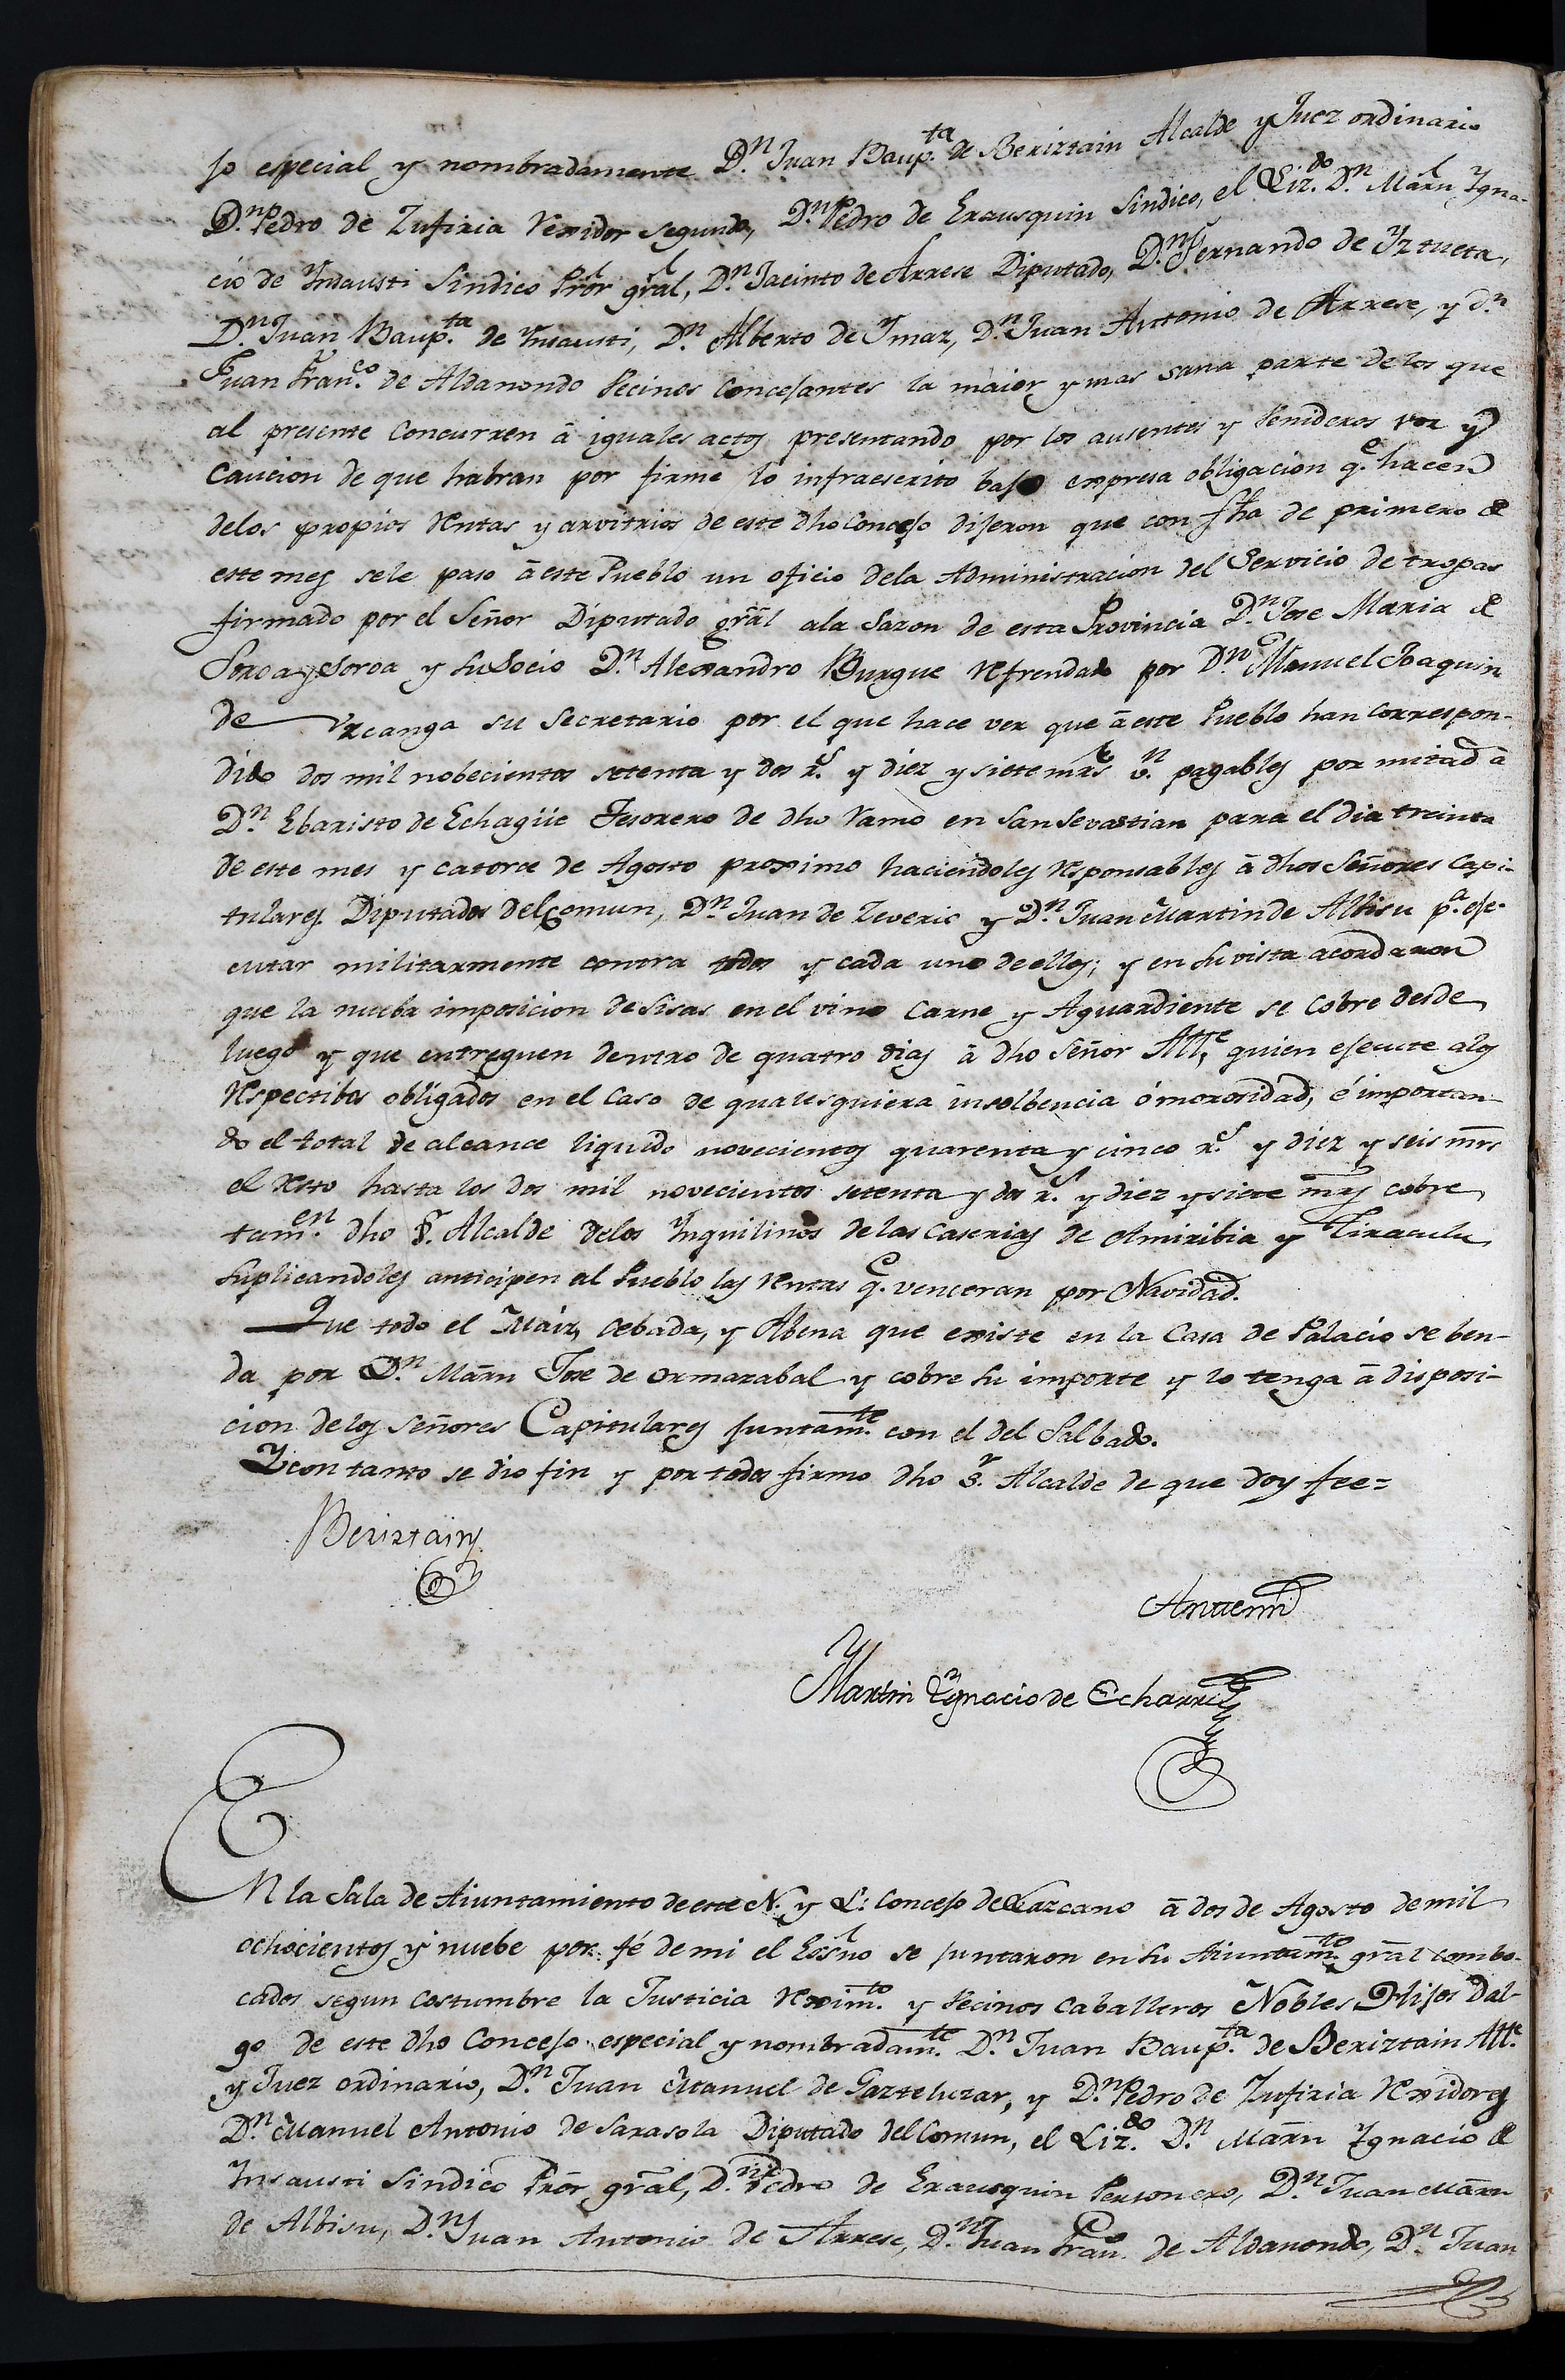 jo especial y nombradamente D.n Juan Baup.ta de Beriztain Alcalde y Juez ordinario
D.n Pedro de Zufiria Rexidor segundo, D.n Pedro de Erausquin Sindico, el Liz.do D.n Mãrn Ygna-
cio de Ynsausti Sindico Prõr grãl, D.n Jacinto de Arrese Diputado, D.n Fernando de Yztueta,
D.n Juan Baup.ta de Ynsausti, D.n Alberto de Ymaz, D.n Juan Antonio de Arrese, y d.n
Juan Fran.co de Aldanondo Vecinos Concejantes la maior y mas sana parte de los que
al presente Concurren â iguales actos presentando por los ausentes y venideros voz y
Caucion de que habran por firme lo infraescrito bajo expresa obligacion q.e hacen
delos propios rentas y arvitrios de este dho Concejo dijeron que con fha de primero de
este mes sele paso â este Pueblo un oficio dela Administracion del Servicio de tropas
firmado por el Señor Diputado grãl ala Sazon de esta Provincia D.n Jose Maria de
Soroa y Soroa y su Socio D.n Alexandro Burgue refrendado por D.n Manuel Joaquin
de Urcanga su Secretario por el que hace ver que â este Pueblo han correspon-
dido dos mil nobecientos setenta y dos r.s y diez y siete mrs v.n pagables por mitad â
D.n Ebaristo de Echagüe Tesorero de dho ramo en San Sevastian para el dia treinta
de este mes y catorce de Agosto proximo haciendoles responsables â dhos Señores Capi-
tulares Diputados del Comun, D.n Juan de Zeveric y D.n Juan Martin de Albisu p.a eje-
cutar militarmente contra todos y cada uno de ellos; y en su vista acordaron
que la nueba imposicion de sisas en el vino Carne y Aguardiente se cobre desde
luego y que entreguen dentro de quatro dias â dho Señor All.e quien ejecute alos
respectibos obligados en el caso de qualesquiera insolbencia ó morosidad, é importan-
do el total de alcance liquido novecientos quarenta y cinco r.s y diez y seis mrs
el resto hasta los dos mil novecientos setenta y dos r.s y diez y siete mrs cobre
tam.en dho S.r Alcalde delos Ynquilinos de las Caserias de Amiribia y Tiraculu
suplicandoles anticipen al Pueblo las rentas q.e venceran por Navidad.
Que todo el Maiz, cebada, y Abena que existe en la Casa de Palacio se ben-
da por D.n Mãrn Jose de Ormazabal y cobre su importe y lo tenga â disposi-
cion delos Señores Capitulares juntam.te con el del Salbado.
Y con tanto se dio fin y por todos firmo dho S.r Alcalde de que doy fee=
Beriztain
Antemi
Martin Ygnacio de Echarri
En la Sala de Aiuntamiento de este N. y L. Concejo de Lazcano â dos de Agosto de mil
ochocientos y nuebe por fé de mi el Essno se juntaron en su Aiuntam.to grãl combo-
cados segun costumbre la Justicia Rexim.to y Vecinos Caballeros Nobles Hijos Dal-
go de este dho Concejo especial y nombradam.te D.n Juan Baup.ta de Beriztain All.e
y Juez ordinario, D.n Juan Manuel de Gazteluzar, y D.n Pedro de Zufiria Rexidores
D.n Manuel Antonio de Sarasola Diputado del Comun, el Liz.do D.n Mãrn Ygnacio de
Insausti Sindico Prõr grãl, D.n Pedro de Erausquin Personero, D.n Juan Mãrn
de Albisu, D.n Juan Antonio de Arrese, D.n Juan Fran.co de Aldanondo, D.n Juan